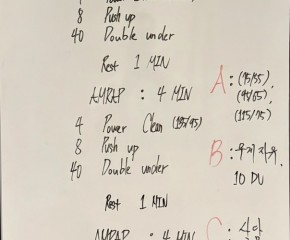 8 Push up
40 Double under
Rest 1 MIN
A : (75/55),
AMRAP : 4 MIN
(95/65),
(115/75)
4 Power Clean (135/95)
8 Push up
B :
40 Double under
10 DU
Rest 1 MIN
C :
AMRAP : 4 MIN